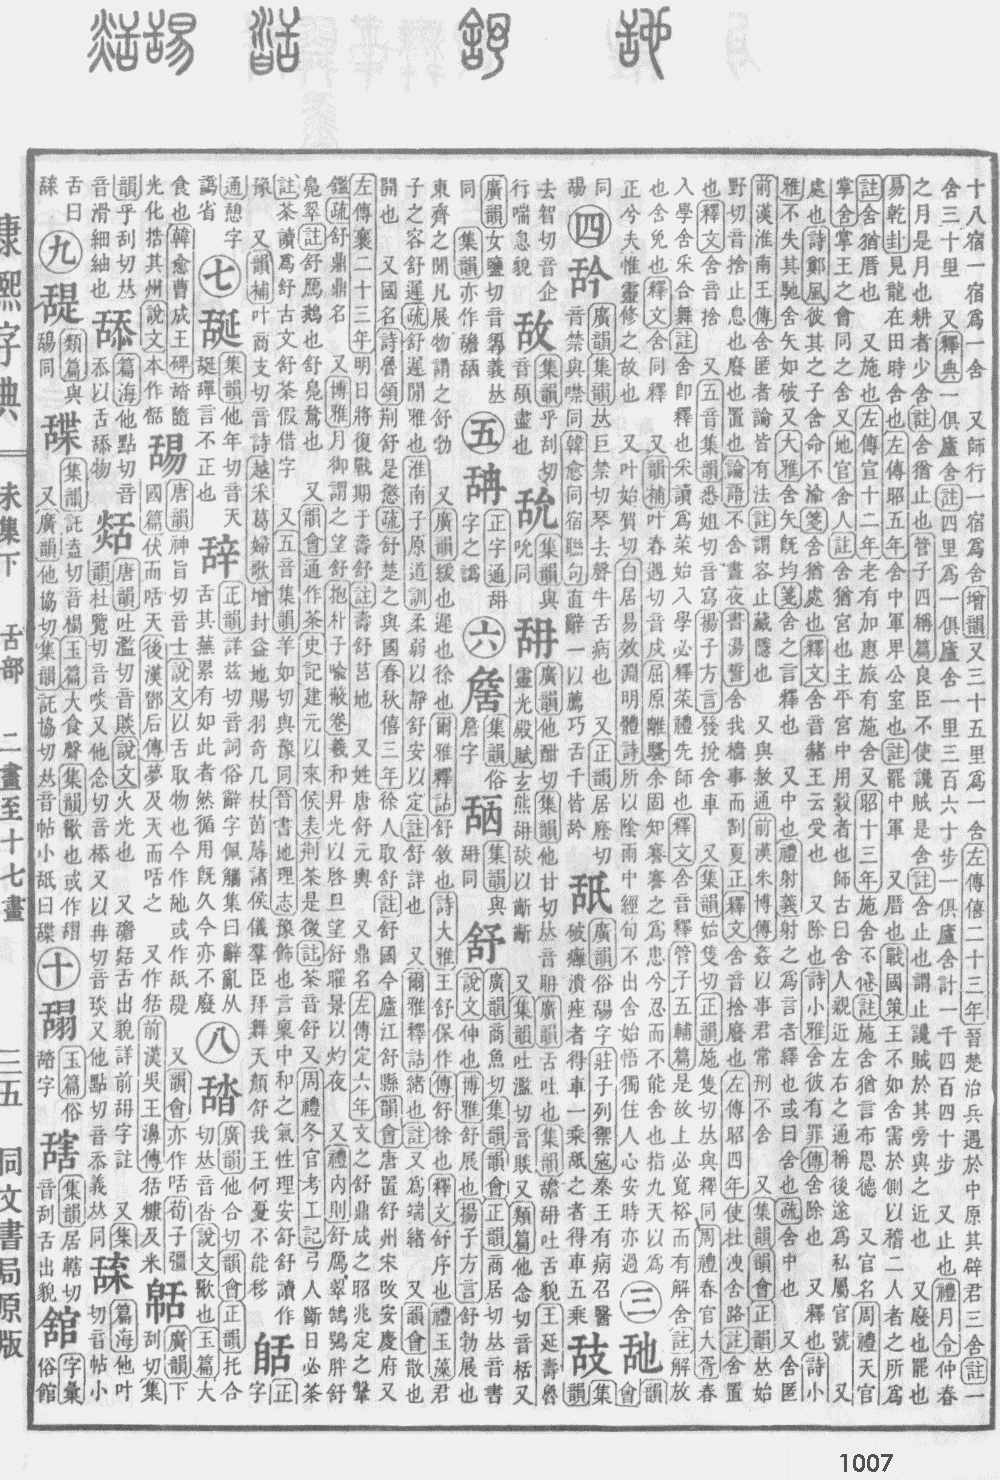 十八宿一宿爲一舍 又師行一宿爲舍增韻又三十五里爲一舍左傳僖二十三年晉楚治兵遇於中原其辟君三舍註一
舍三十里 又釋典一俱廬舍註四里爲一俱廬舍一里三百六十步一俱廬舍計一千四百四十步 又止也禮月令仲春
之月是月也耕者少舍註舍猶止也管子四稱篇良臣不使讒賊是舍註舍止也謂止讒賊於其旁與之近也 又廢也罷也
易乾卦見龍在田時舍也左傳昭五年舍中軍𤰞公室也註罷中軍 又厝也戰國策王不如舍需於側以稽二人者之所爲
註舍猶厝也 又施也左傳宣十二年老有加惠旅有施舍又昭十三年施舍不倦註施舍猶言布恩德 又官名周禮天官
掌舍掌王之會同之舍又地官舍人註舍猶宮也主平宮中用穀者也師古曰舍人親近左右之通稱後遂爲私屬官號 又
處也詩鄭風彼其之子舍命不渝箋舍猶處也釋文舍音赦王云受也 又除也詩小雅舍彼有罪傳舍除也 又釋也詩小
雅不失其馳舍矢如破又大雅舍矢旣均箋舍之言釋也 又中也禮射義射之爲言者繹也或曰舍也疏舍中也 又舍匿
前漢淮南王傳舍匿者論皆有法註謂容止藏隱也 又與赦通前漢朱博傳姦以事君常刑不舍 又集韻韻會正韻𠀤始
野切音捨止息也廢也置也論語不舍晝夜書湯誓舍我穡事而割夏正釋文舍音捨廢也左傳昭四年使杜洩舍路註舍置
也釋文舍音捨 又五音集韻悉姐切音寫揚子方言發挩舍車 又集韻始隻切正韻施隻切𠀤與釋同周禮春官大胥春
入學舍采合舞註舍卽釋也采讀爲菜始入學必釋菜禮先師也釋文舍音釋管子五輔篇是故上必寬裕而有解舍註解放
也舍免也釋文舍同釋 又韻補叶春遇切音戍屈原離騷余固知謇謇之爲患兮忍而不能舍也指九天以爲
正兮夫惟靈修之故也 又叶始賀切白居易效淵明體詩所以陰雨中經旬不出舍始悟獨住人心安時亦過 三 舓 韻會
同
舐 四 䑤 廣韻集韻𠀤巨禁切琴去聲牛舌病也 又正韻居廕切
音禁與噤同韓愈同宿聯句直辭一以薦巧舌千皆䑤 舐 廣韻俗舓字莊子列禦寇秦王有病召醫
破癰潰痤者得車一乘舐之者得車五乘 㪁 集韻
去智切音企
行喘息貌 敌 集韻乎刮切
音頢盡也 𦧈 集韻與
吮同 䑙 廣韻他酣切集韻他甘切𠀤音聃廣韻舌吐也集韻䑙吐舌貌王延壽魯
靈光殿賦玄熊䑙䑛以齗齗 又集韻吐濫切音賧又類篇他念切音栝又
廣韻女鹽切音𪐏義𠀤
同 集韻亦作𦧴𦧇 五 𦧆 正字通䑙
字之譌 六 𦧚 集韻俗
詹字 𦧇 集韻與
䑙同 舒 廣韻商魚切集韻韻會正韻商居切𠀤音書
說文伸也博雅舒展也揚子方言舒勃展也
東齊之閒凡展物謂之舒勃 又廣韻緩也遲也徐也爾雅釋詁舒敘也詩大雅王舒保作傳舒徐也釋文舒序也禮玉藻君
子之容舒遲疏舒遲閒雅也淮南子原道訓柔弱以靜舒安以定註舒詳也 又爾雅釋詁緖也註又爲端緖 又韻會散也
開也 又國名詩魯頌荆舒是懲疏舒楚之與國春秋僖三年徐人取舒註舒國今廬江舒縣韻會唐置舒州宋改安慶府又
左傳襄二十三年明日將復戰期于壽舒註壽舒莒地 又姓唐舒元輿 又鼎名左傳定六年文之舒鼎成之昭兆定之鞶
鑑疏舒鼎鼎名 又博雅月御謂之望舒抱朴子喩蔽卷羲和昇光以啓旦望舒曜景以灼夜 又禮內則舒鴈翠鵠鴞胖舒
鳧翠註舒鴈鵝也舒鳧鶩也 又韻會通作荼史記建元以來侯表荆荼是徵註荼音舒又周禮冬官考工記弓人斲目必荼
註荼讀爲舒古文舒荼假借字 又五音集韻羊如切與豫同晉書地理志豫飾也言稟中和之氣性理安舒舒讀作
豫 又韻補叶商支切音詩越采葛婦歌增封益地賜羽奇几杖茵蓐諸侯儀羣臣拜舞天顏舒我王何憂不能移 𦧖 正字
通憩字
譌省 七 𦧝 集韻他年切音天
𦧝䜝言不正也 辞 正韻詳兹切音詞俗辭字佩觿集曰辭亂从
舌其蕪累有如此者然循用旣久今亦不廢 八 䑜 廣韻他合切韻會正韻托合
切𠀤音沓說文歠也玉篇大
食也韓愈曹成王碑䑜隨
光化捁其州說文本作𦧟 舓 唐韻神旨切音士說文以舌取物也今作䑛或作舐䑛
國篇伏而咶天後漢鄧后傳夢及天而咶之 又作狧前漢吳王濞傳狧穅及米 又韻會亦作咶荀子彊 𦧥 廣韻下
刮切集
韻乎刮切𠀤
音滑細紬也 舔 篇海他點切音
忝以舌舔物 𦧡 唐韻吐濫切音賧說文火光也 又䑙𦧡舌出貌詳前䑙字註 又集
韻杜覽切音啖又他念切音㮇又以冉切音琰又他點切音忝義𠀤同 𦧤 篇海他叶
切音帖小
舌曰
𦧤 九 𦧧 類篇與
舓同 䑜 集韻託盍切音榻玉篇大食聲集韻歠也或作𠴲
又廣韻他協切集韻託協切𠀤音帖小舐曰䑜 十 𦧭 玉篇俗
䜚字 𦧲 集韻居轄切
音刮舌出貌 舘 字彙
俗館
康熙字典 未集下 舌部 二畫至十七畫 三五 同文書局原版
1007